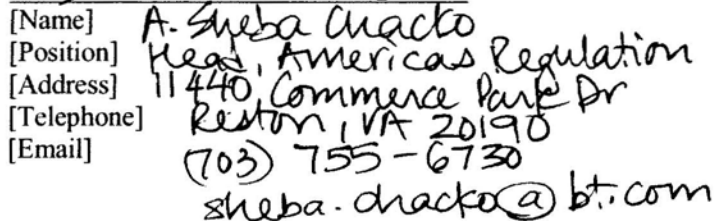 [Name] A. Sheba Chacko
[Position] Head, Americas Regulation
[Address] 11440 Commerce Park Dr
[Telephone] Reston, VA 20190
[Email] (703) 755-6730
sheba.chacko@bt.com